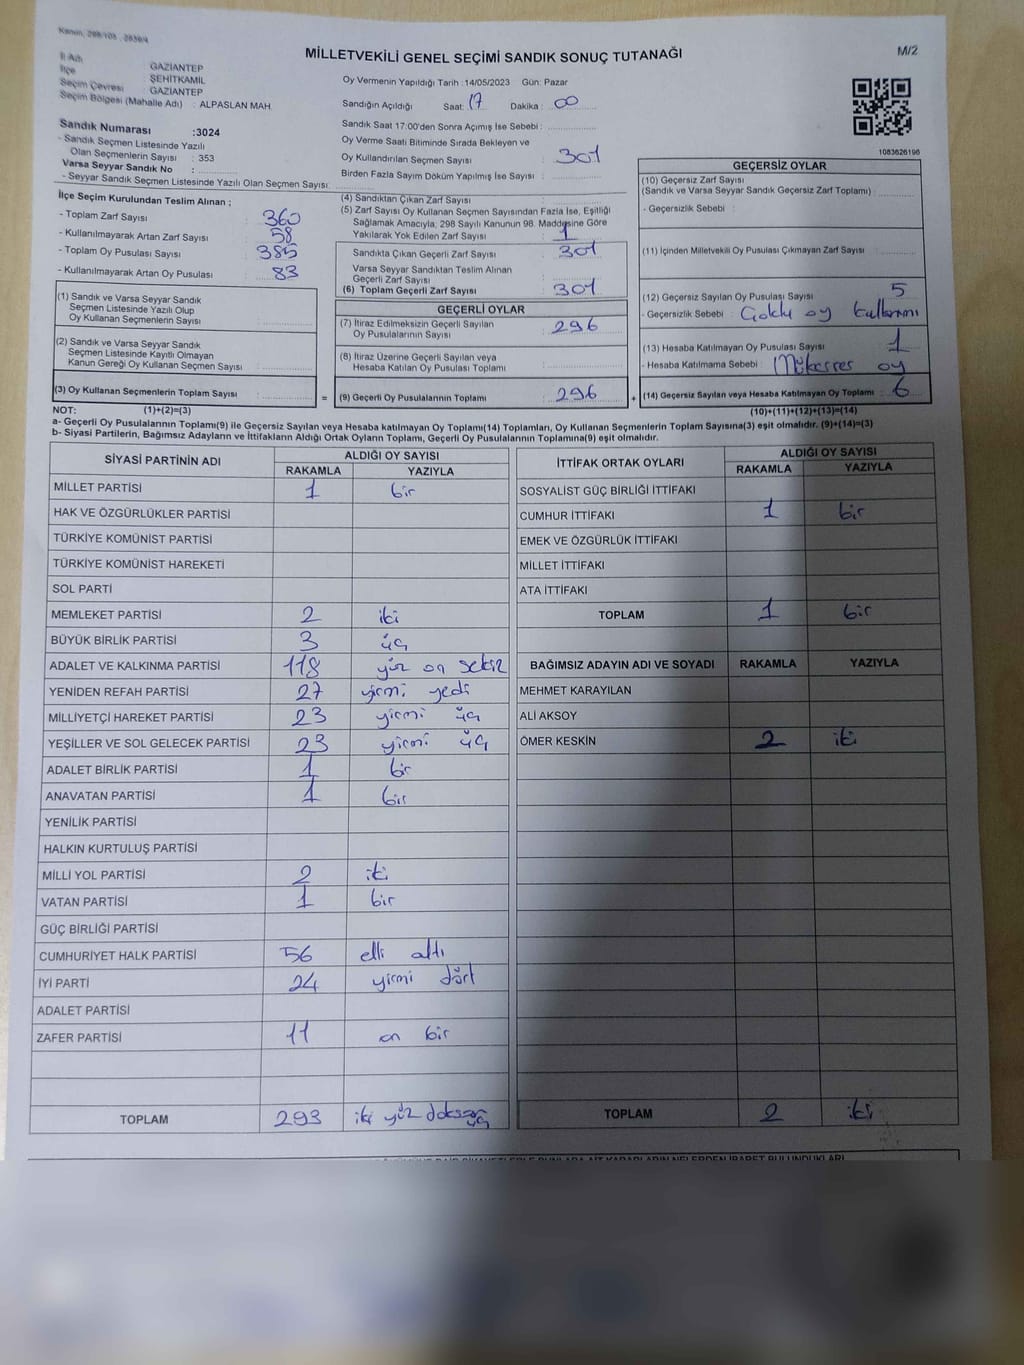 Kanun, 298/105 , 2839/4
MİLLETVEKİLİ GENEL SEÇİMİ SANDIK SONUÇ TUTANAĞI
M/2
İl Adı GAZİANTEP
İlçe ŞEHİTKAMİL
Seçim Çevresi : GAZİANTEP
Seçim Bölgesi (Mahalle Adı) : ALPASLAN MAH.
Sandık Numarası :3024
- Sandık Seçmen Listesinde Yazılı
Olan Seçmenlerin Sayısı : 353
Varsa Seyyar Sandık No :
- Seyyar Sandık Seçmen Listesinde Yazılı Olan Seçmen Sayısı:
Oy Vermenin Yapıldığı Tarih :14/05/2023 Gün: Pazar
Sandığın Açıldığı Saat: 17 Dakika : 00
Sandık Saat 17:00'den Sonra Açımış İse Sebebi :
Oy Verme Saati Bitiminde Sırada Bekleyen ve
Oy Kullandırılan Seçmen Sayısı : 301
Birden Fazla Sayım Döküm Yapılmış İse Sayısı :
1083626196
İlçe Seçim Kurulundan Teslim Alınan ;
- Toplam Zarf Sayısı : 360
- Kullanılmayarak Artan Zarf Sayısı : 58
- Toplam Oy Pusulası Sayısı : 385
- Kullanılmayarak Artan Oy Pusulası : 83
(1) Sandık ve Varsa Seyyar Sandık
Seçmen Listesinde Yazılı Olup
Oy Kullanan Seçmenlerin Sayısı :
(2) Sandık ve Varsa Seyyar Sandık
Seçmen Listesinde Kayıtlı Olmayan
Kanun Gereği Oy Kullanan Seçmen Sayısı :
(3) Oy Kullanan Seçmenlerin Toplam Sayısı :
=
(4) Sandıktan Çıkan Zarf Sayısı :
(5) Zarf Sayısı Oy Kullanan Seçmen Sayısından Fazla İse, Eşitliği
Sağlamak Amacıyla, 298 Sayılı Kanunun 98. Maddesine Göre
Yakılarak Yok Edilen Zarf Sayısı : 1
Sandıkta Çıkan Geçerli Zarf Sayısı : 301
Varsa Seyyar Sandıktan Teslim Alınan
Geçerli Zarf Sayısı :
(6) Toplam Geçerli Zarf Sayısı : 301
GEÇERLİ OYLAR
(7) İtiraz Edilmeksizin Geçerli Sayılan
Oy Pusulalarının Sayısı : 296
(8) İtiraz Üzerine Geçerli Sayılan veya
Hesaba Katılan Oy Pusulası Toplamı :
(9) Geçerli Oy Pusulalarının Toplamı : 296
+
GEÇERSİZ OYLAR
(10) Geçersiz Zarf Sayısı
(Sandık ve Varsa Seyyar Sandık Geçersiz Zarf Toplamı) :
- Geçersizlik Sebebi :
(11) İçinden Milletvekili Oy Pusulası Çıkmayan Zarf Sayısı :
(12) Geçersiz Sayılan Oy Pusulası Sayısı : 5
- Geçersizlik Sebebi : Çoklu oy kullanımı
(13) Hesaba Katılmayan Oy Pusulası Sayısı : 1
- Hesaba Katılmama Sebebi : Mükerrer oy
(14) Geçersiz Sayılan veya Hesaba Katılmayan Oy Toplamı : 6
NOT: (1)+(2)=(3) (10)+(11)+(12)+(13)=(14)
a- Geçerli Oy Pusulalarının Toplamı(9) ile Geçersiz Sayılan veya Hesaba katılmayan Oy Toplamı(14) Toplamları, Oy Kullanan Seçmenlerin Toplam Sayısına(3) eşit olmalıdır. (9)+(14)=(3)
b- Siyasi Partilerin, Bağımsız Adayların ve İttifakların Aldığı Ortak Oyların Toplamı, Geçerli Oy Pusulalarının Toplamına(9) eşit olmalıdır.
SİYASİ PARTİNİN ADI ALDIĞI OY SAYISI
RAKAMLA YAZIYLA
MİLLET PARTİSİ 1 bir
HAK VE ÖZGÜRLÜKLER PARTİSİ
TÜRKİYE KOMÜNİST PARTİSİ
TÜRKİYE KOMÜNİST HAREKETİ
SOL PARTİ
MEMLEKET PARTİSİ 2 iki
BÜYÜK BİRLİK PARTİSİ 3 üç
ADALET VE KALKINMA PARTİSİ 118 yüz on sekiz
YENİDEN REFAH PARTİSİ 27 yirmi yedi
MİLLİYETÇİ HAREKET PARTİSİ 23 yirmi üç
YEŞİLLER VE SOL GELECEK PARTİSİ 23 yirmi üç
ADALET BİRLİK PARTİSİ 1 bir
ANAVATAN PARTİSİ 1 bir
YENİLİK PARTİSİ
HALKIN KURTULUŞ PARTİSİ
MİLLİ YOL PARTİSİ 2 iki
VATAN PARTİSİ 1 bir
GÜÇ BİRLİĞİ PARTİSİ
CUMHURİYET HALK PARTİSİ 56 elli altı
İYİ PARTİ 24 yirmi dört
ADALET PARTİSİ
ZAFER PARTİSİ 11 on bir
TOPLAM 293 iki yüz doksan üç
İTTİFAK ORTAK OYLARI ALDIĞI OY SAYISI
RAKAMLA YAZIYLA
SOSYALİST GÜÇ BİRLİĞİ İTTİFAKI
CUMHUR İTTİFAKI 1 bir
EMEK VE ÖZGÜRLÜK İTTİFAKI
MİLLET İTTİFAKI
ATA İTTİFAKI
TOPLAM 1 bir
BAĞIMSIZ ADAYIN ADI VE SOYADI RAKAMLA YAZIYLA
MEHMET KARAYILAN
ALİ AKSOY
ÖMER KESKİN 2 iki
TOPLAM 2 iki